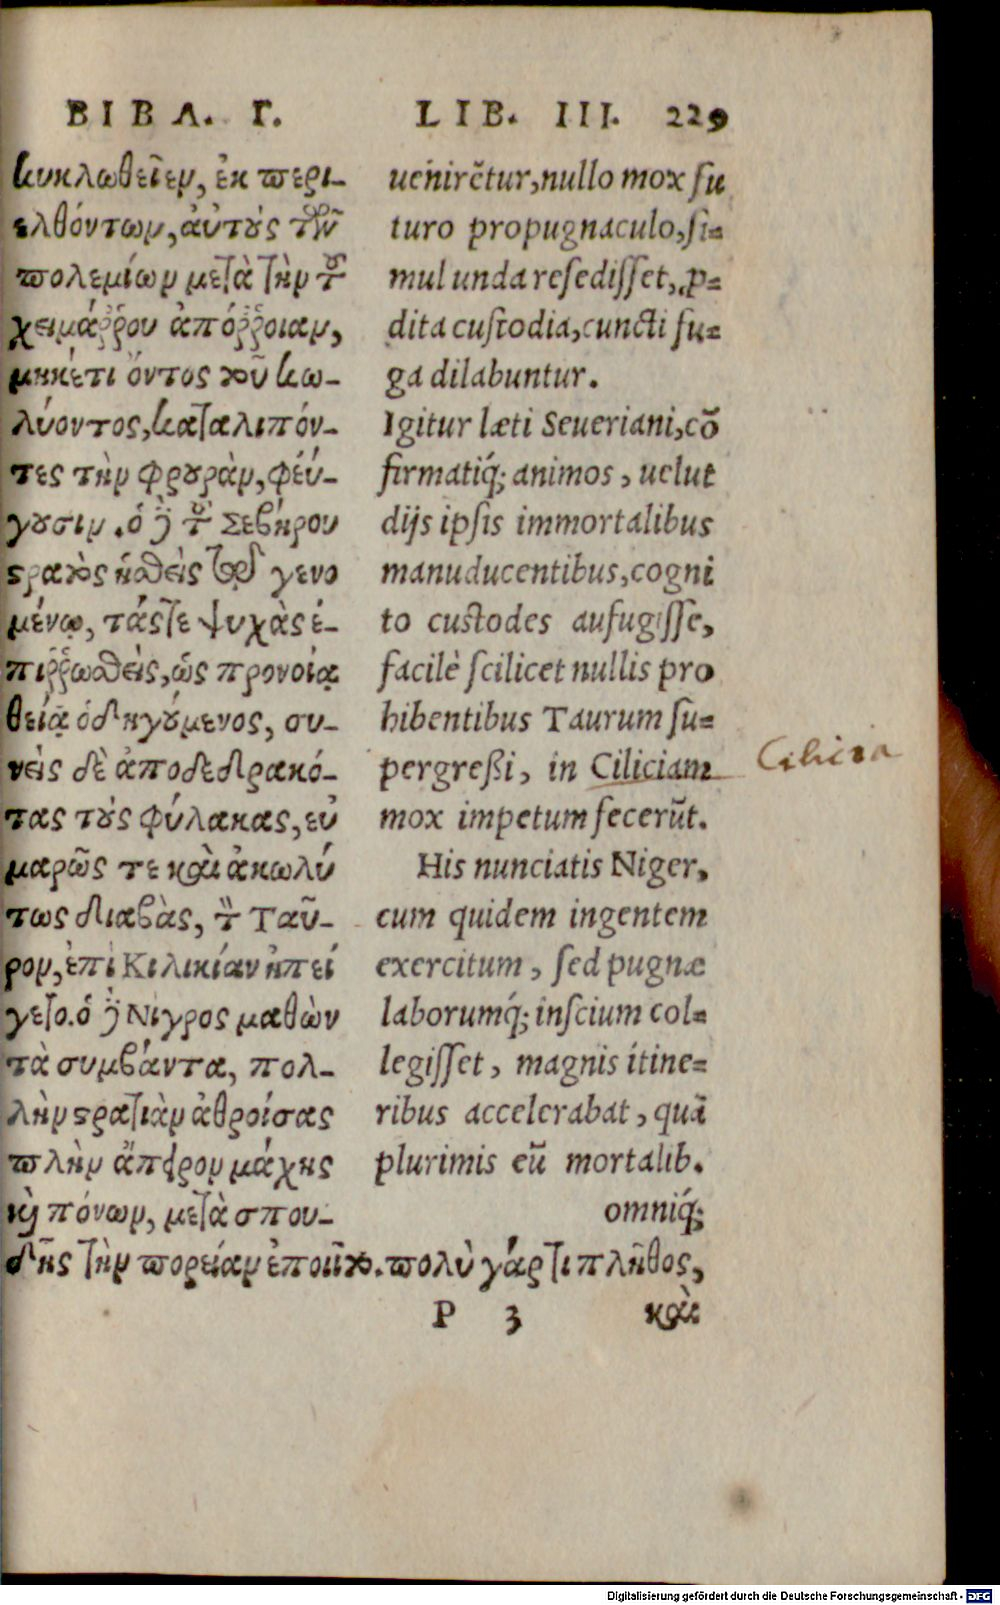 ΒΙΒΛ. Γ.
κυκλωθεῖεν, ἐκ περι-
ελθόντων, αὐτοὺς τῶν
πολεμίων μετὰ τὴν τοῦ
χειμάῤῥου ἀπόῤῥοιαν,
μηκέτι ὄντος τοῦ κω-
λύοντος, καταλιπόν-
τες τὴν φρουρὰν, φεύ-
γουσιν. ὁ δὲ τοῦ Σεβήρου
στρατὸς ἡσθεὶς τῷ γενο
μένῳ, τάς τε ψυχὰς ἐ-
πιῤῥωσθεὶς, ὡς προνοίᾳ
θείᾳ ὁδηγούμενος, συ-
νεὶς δὲ ἀποδεδρακό-
τας τοὺς φύλακας, εὐ
μαρῶς τε καὶ ἀκωλύ
τως διαβὰς, τὸν Ταῦ-
ρον, ἐπὶ Κιλικίαν ἠπεί
γετο. ὁ δὲ Νίγρος μαθὼν
τὰ συμβάντα, πολ-
λὴν στρατιὰν ἀθροίσας
πλὴν ἄπειρον μάχης
καὶ πόνων, μετὰ σπου-
δῆς τὴν πορείαν ἐποιεῖτο. πολὺ γάρ τι πλῆθος,
LIB. III. 229
uenirētur, nullo mox fu
turo propugnaculo, si-
mul unda resedisset, p-
dita custodia, cuncti fu-
ga dilabuntur.
Igitur læti Seueriani, cō
firmatiq́; animos, uelut
dijs ipsis immortalibus
manuducentibus, cogni
to custodes aufugisse,
facilè scilicet nullis pro
hibentibus Taurum su-
pergreßi, in Ciliciam
mox impetum fecerūt.
His nunciatis Niger,
cum quidem ingentem
exercitum, sed pugnæ
laborumq́; inscium col-
legisset, magnis itine-
ribus accelerabat, quā
plurimis eū mortalib.
omniq́;
P 3 καὶ
Cilicia
Digitalisierung gefördert durch die Deutsche Forschungsgemeinschaft - DFG